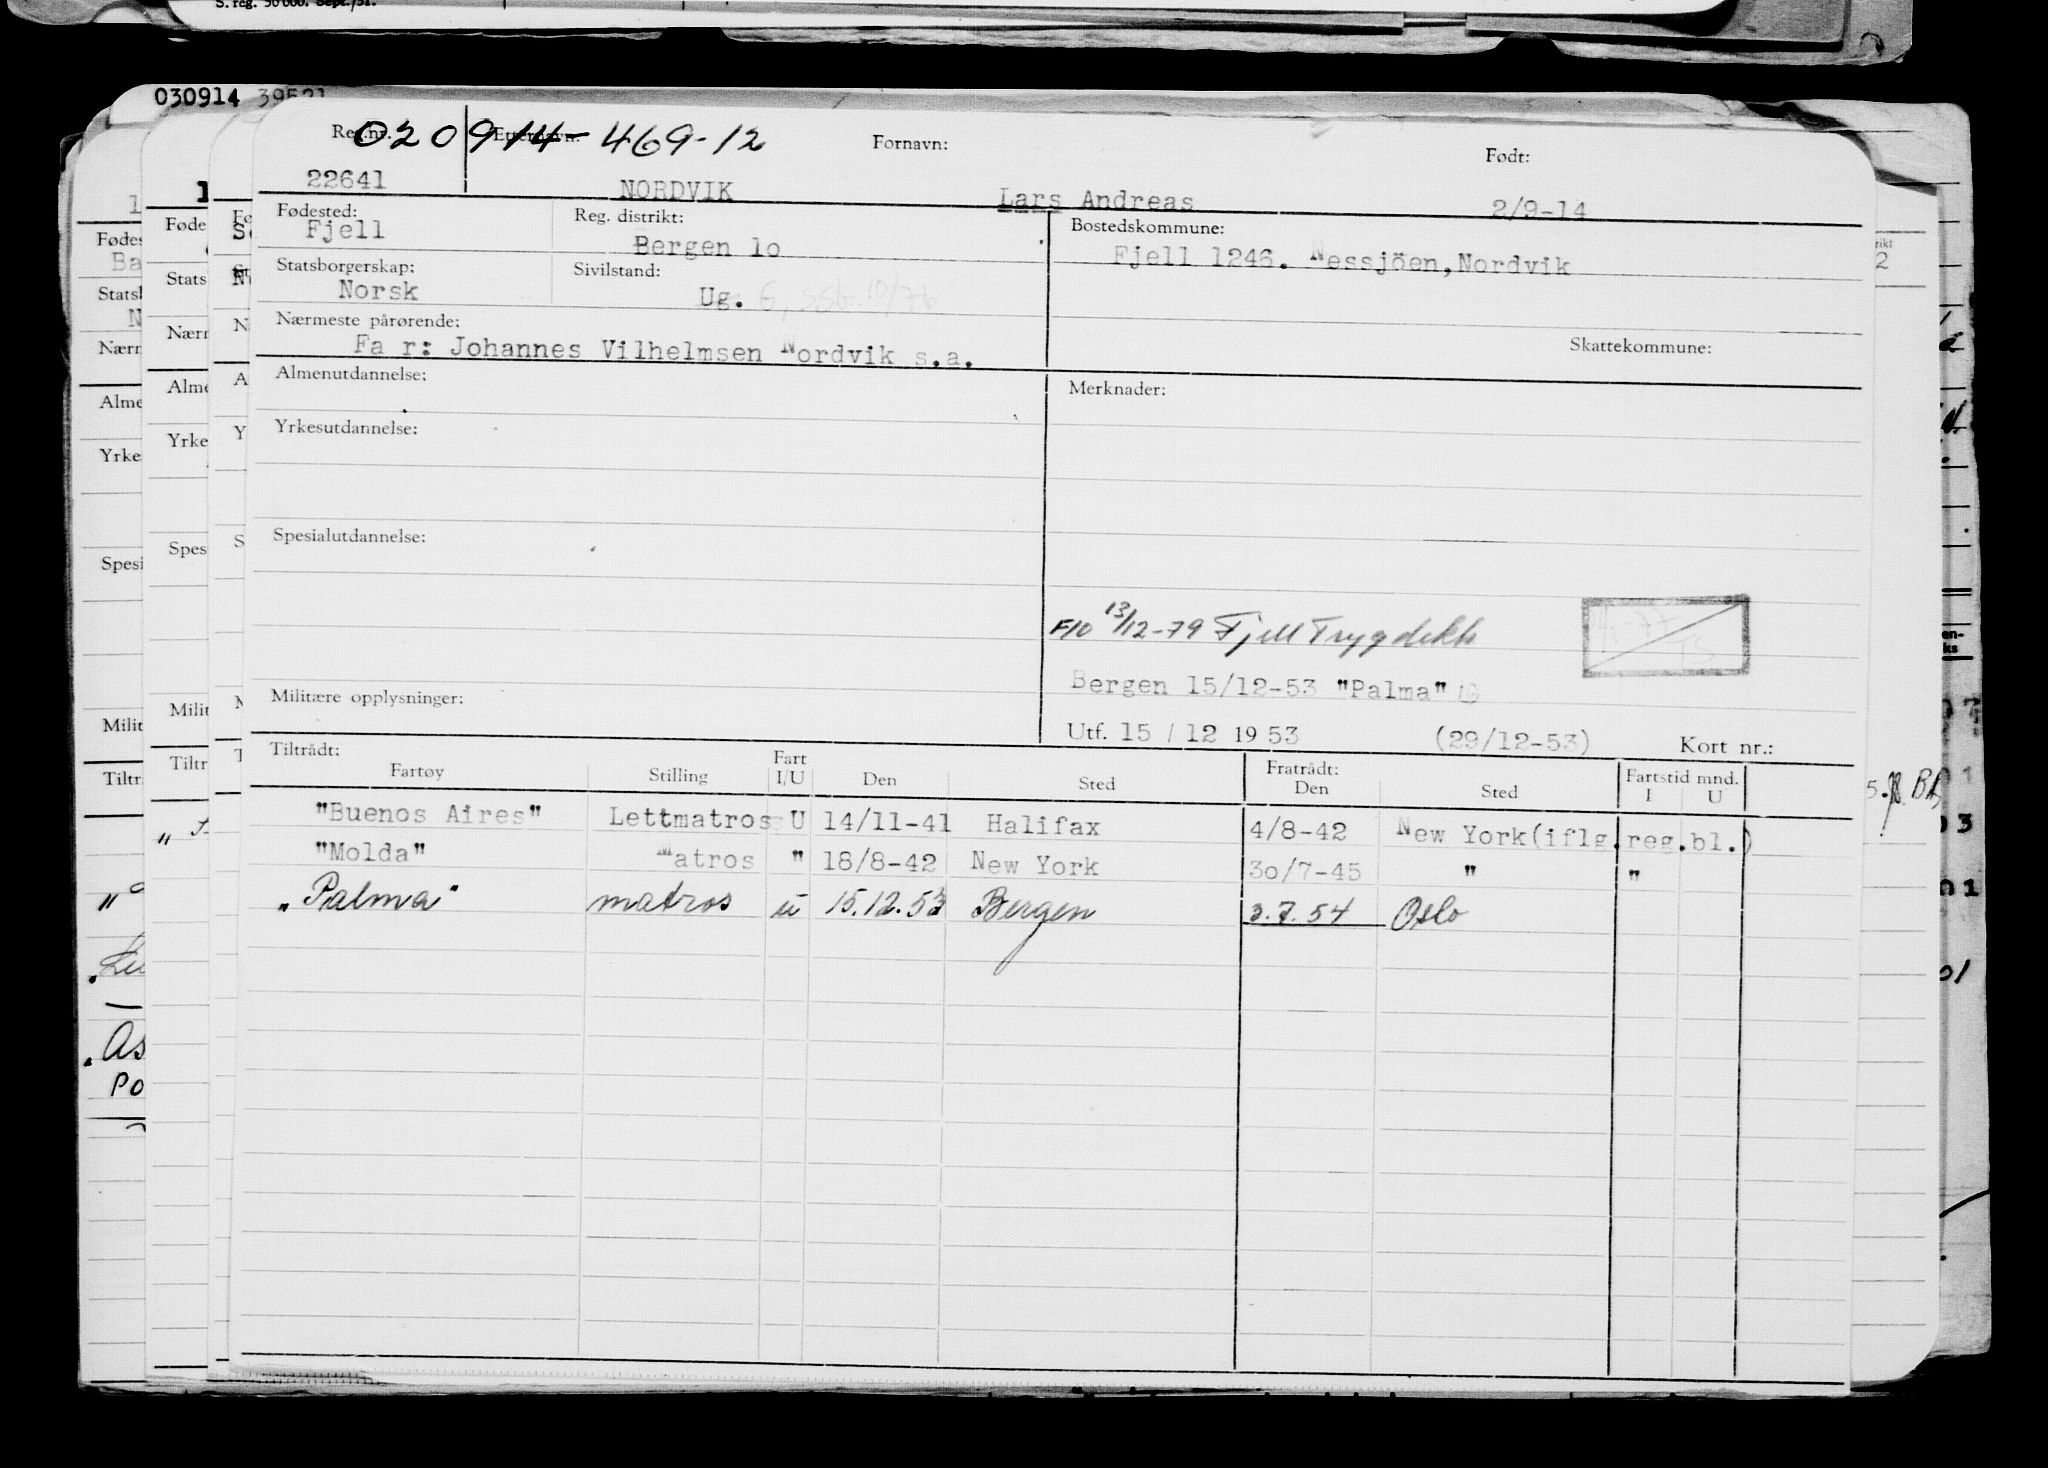 S. reg. 50 000. Sept./51.
030914 39521
Reg.nr. 020914-469-12 Etternavn: Fornavn: Født:
22641 NORDVIK Lars Andreas 2/9-14
Fødested: Reg. distrikt: Bostedskommune:
Fjell Bergen lo Fjell 1246. Nessjöen, Nordvik
Statsborgerskap: Sivilstand:
Norsk Ug.
Nærmeste pårørende: Skattekommune:
Fa r: Johannes Vilhelmsen Nordvik s.a.
Almenutdannelse: Merknader:
Yrkesutdannelse:
Spesialutdannelse:
F10 13/12-79 Fjell Trygdekk
Bergen 15/12-53 "Palma"
Militære opplysninger: Utf. 15 / 12 19 53 (29/12-53) Kort nr.:
Tiltrådt: Fratrådt:
Fartøy Stilling Fart I/U Den Sted Den Sted Fartstid mnd. I U
"Buenos Aires" Lettmatros U 14/11-41 Halifax 4/8-42 New York(iflg.reg.bl.)
"Molda" Matros " 18/8-42 New York 30/7-45 " "
"Palma" matros u 15.12.53 Bergen 3.7.54 Oslo